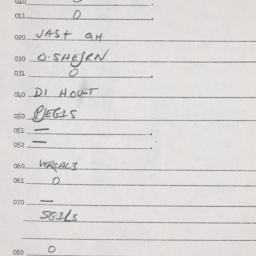 010
011 0
020 JAST QH
030 O.SHEJRN
031 0
040 DI HOUT
050 PJEGIS
051 —
052 —
060 VERGAL3
061 0
070 —
SGILS
080 0